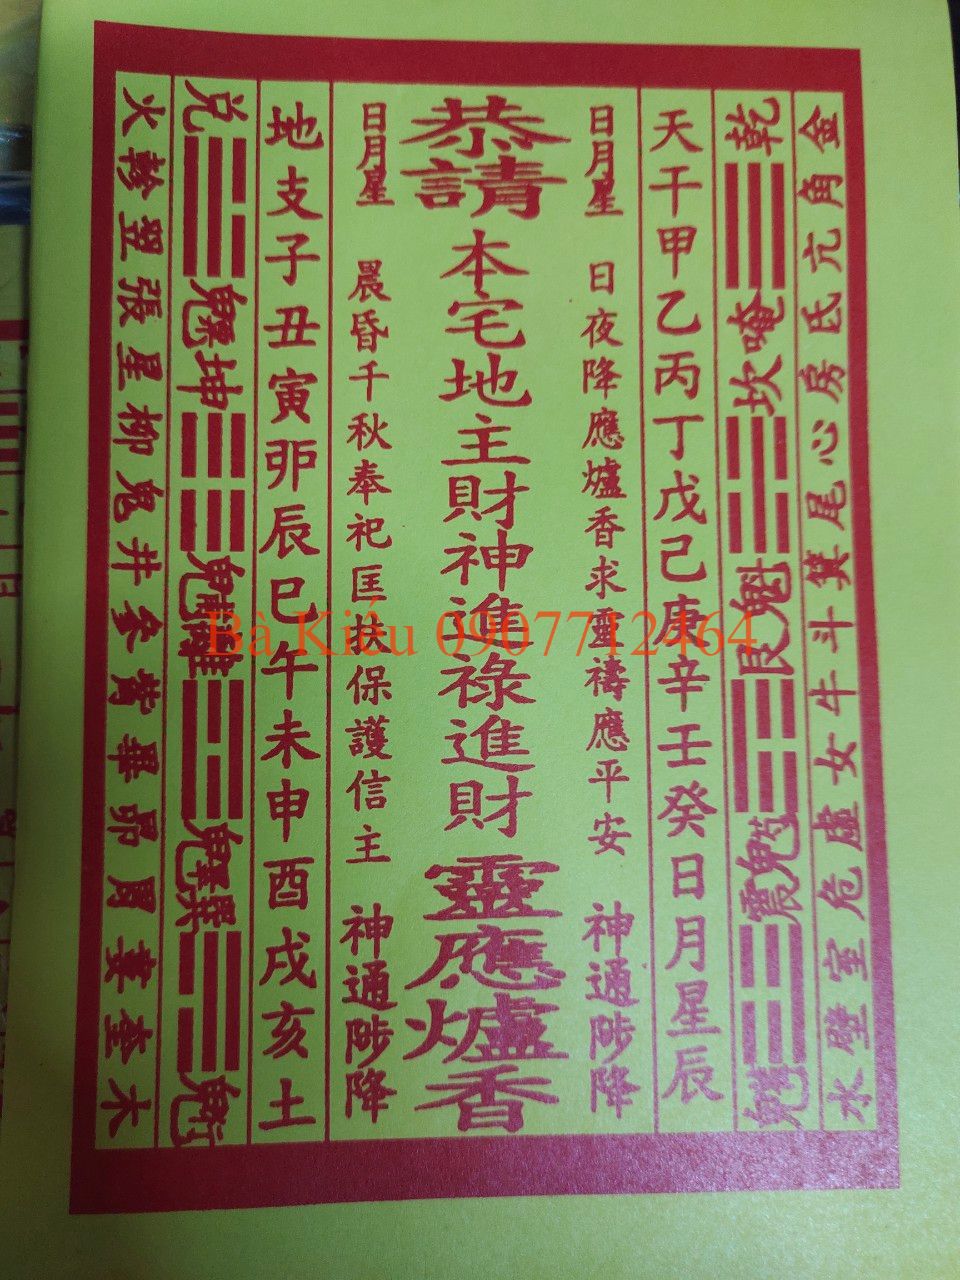 金角亢氐房心尾箕斗牛女虛危室壁水
乾唵坎魁艮魁震魁
天干甲乙丙丁戊己庚辛壬癸日月星辰
日月星 日夜降應爐香求靈禱應平安 神通陟降
恭請本宅地主財神進祿進財靈應爐香
日月星 晨昏千秋奉祀匡扶保護信主 神通陟降
地支子丑寅卯辰巳午未申酉戌亥土
兌坤離巽
火軫翌張星柳鬼井參觜畢昴胃婁奎木
Bà Kiều 0907712464